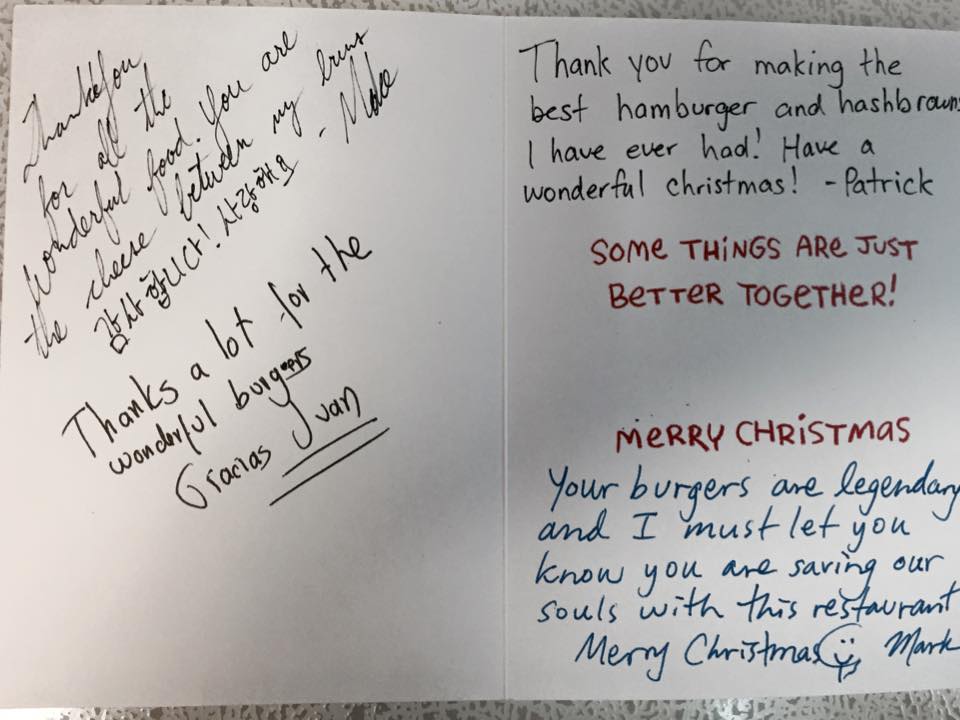 Thank you
for all the
wonderful food. You are
the cheese between my buns
감사합니다! 사랑해요 -
Thanks a lot for the
wonderful burgers
Gracias Ivan
Thank you for making the
best hamburger and hashbrowns
I have ever had! Have a
wonderful christmas! -Patrick
SOME THINGS ARE JUST
BETTER TOGETHER!
MERRY CHRISTMAS
Your burgers are legendary
and I must let you
know you are saving our
souls with this restaurant
Merry Christmas Mark